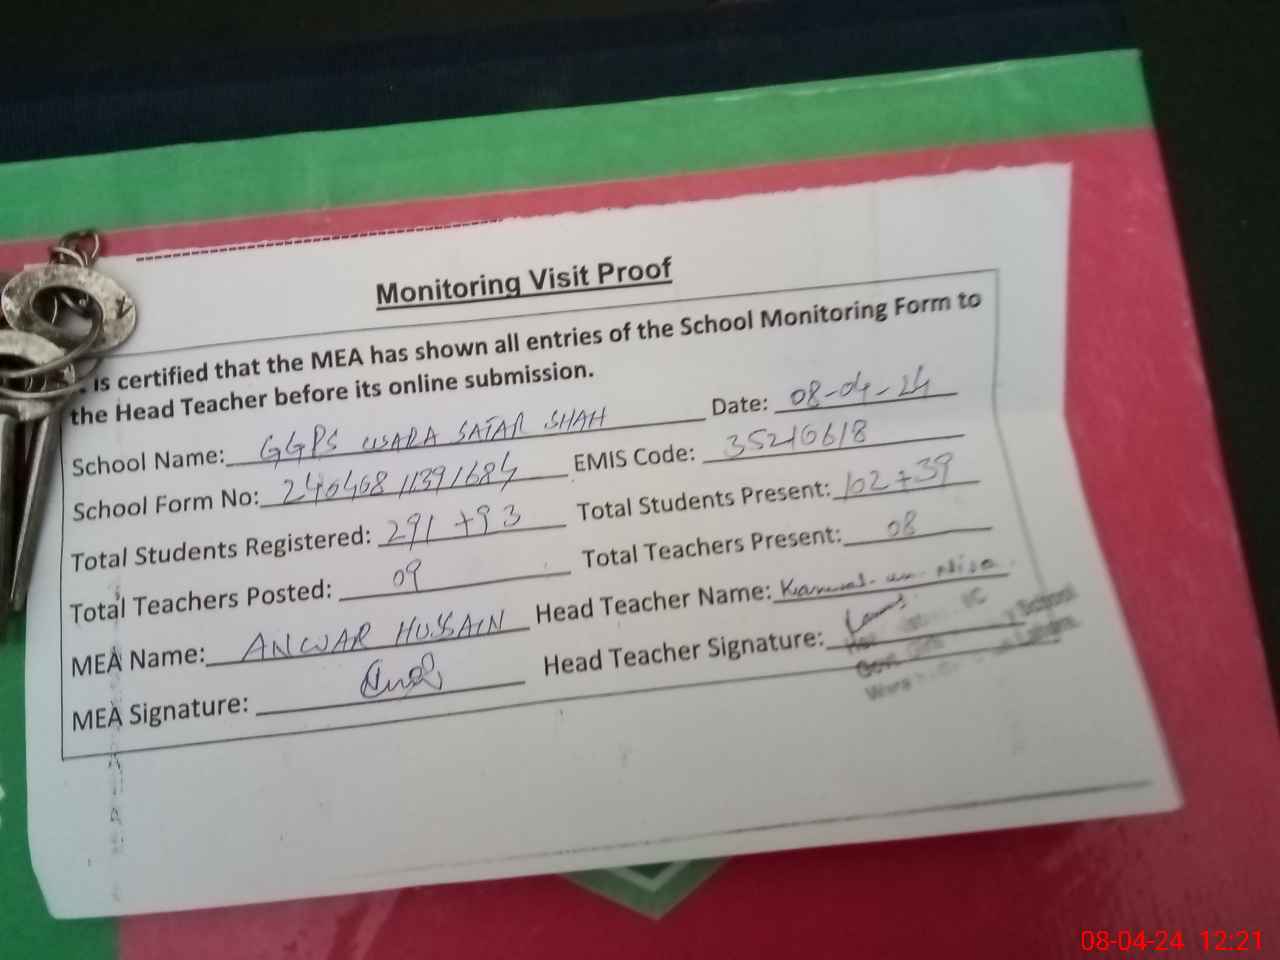 Monitoring Visit Proof
is certified that the MEA has shown all entries of the School Monitoring Form to
the Head Teacher before its online submission.
School Name: GGPS WARA SATAR SHAH Date: 08-04-24
School Form No: 24040811391684 EMIS Code: 35210618
Total Students Registered: 291+93 Total Students Present: 102+39
Total Teachers Posted: 09 Total Teachers Present: 08
MEA Name: ANWAR HUSSAIN Head Teacher Name: Kanwal-un-Nisa
MEA Signature: Head Teacher Signature:
School
Govt.
Wara
08-04-24 12:21